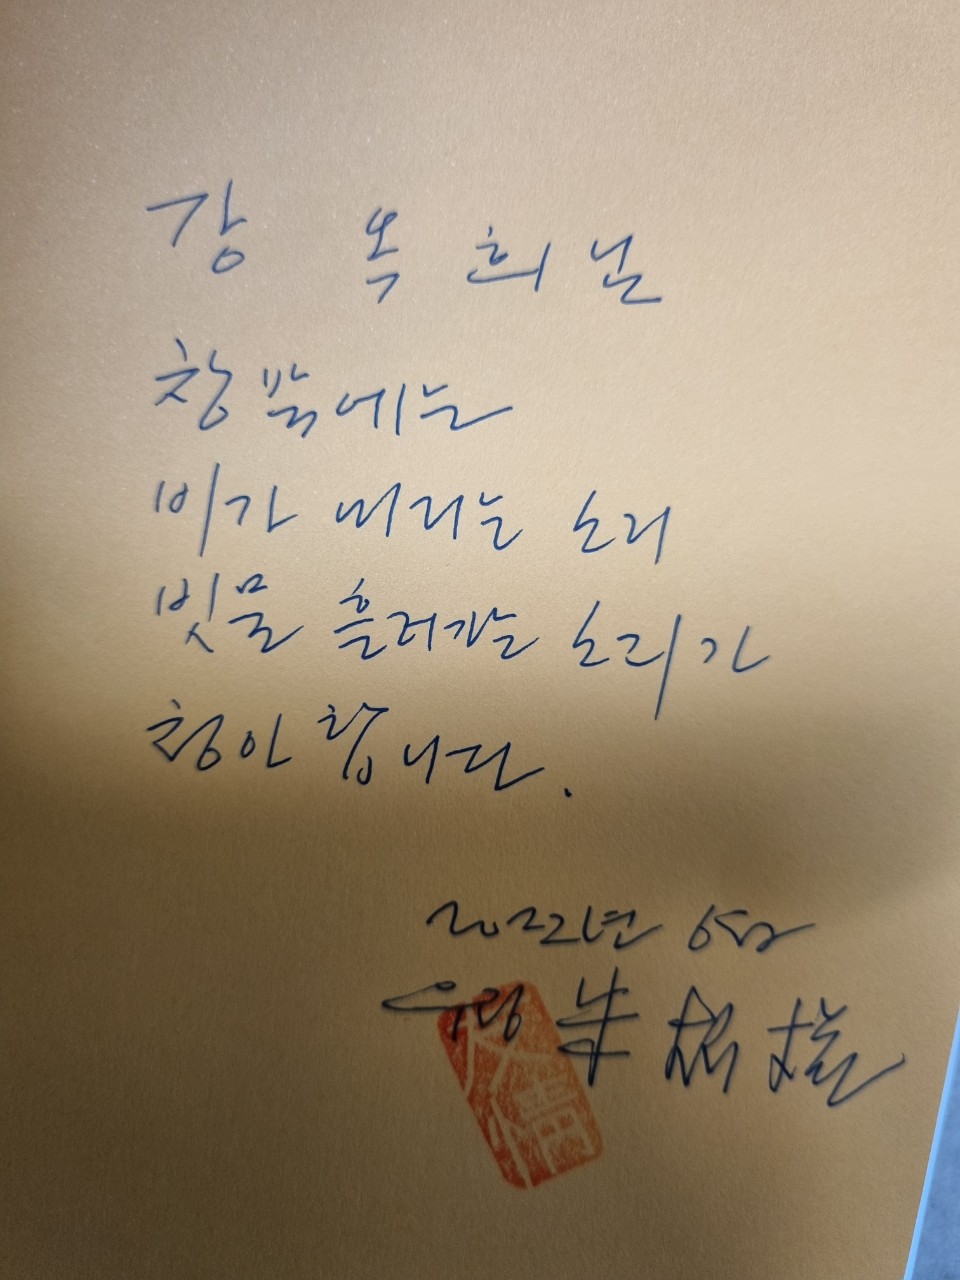 강 옥 희님
창밖에는
비가 내리는 소리
빗물 흘러가는 소리가
청아합니다.
2022년 6월
우랑